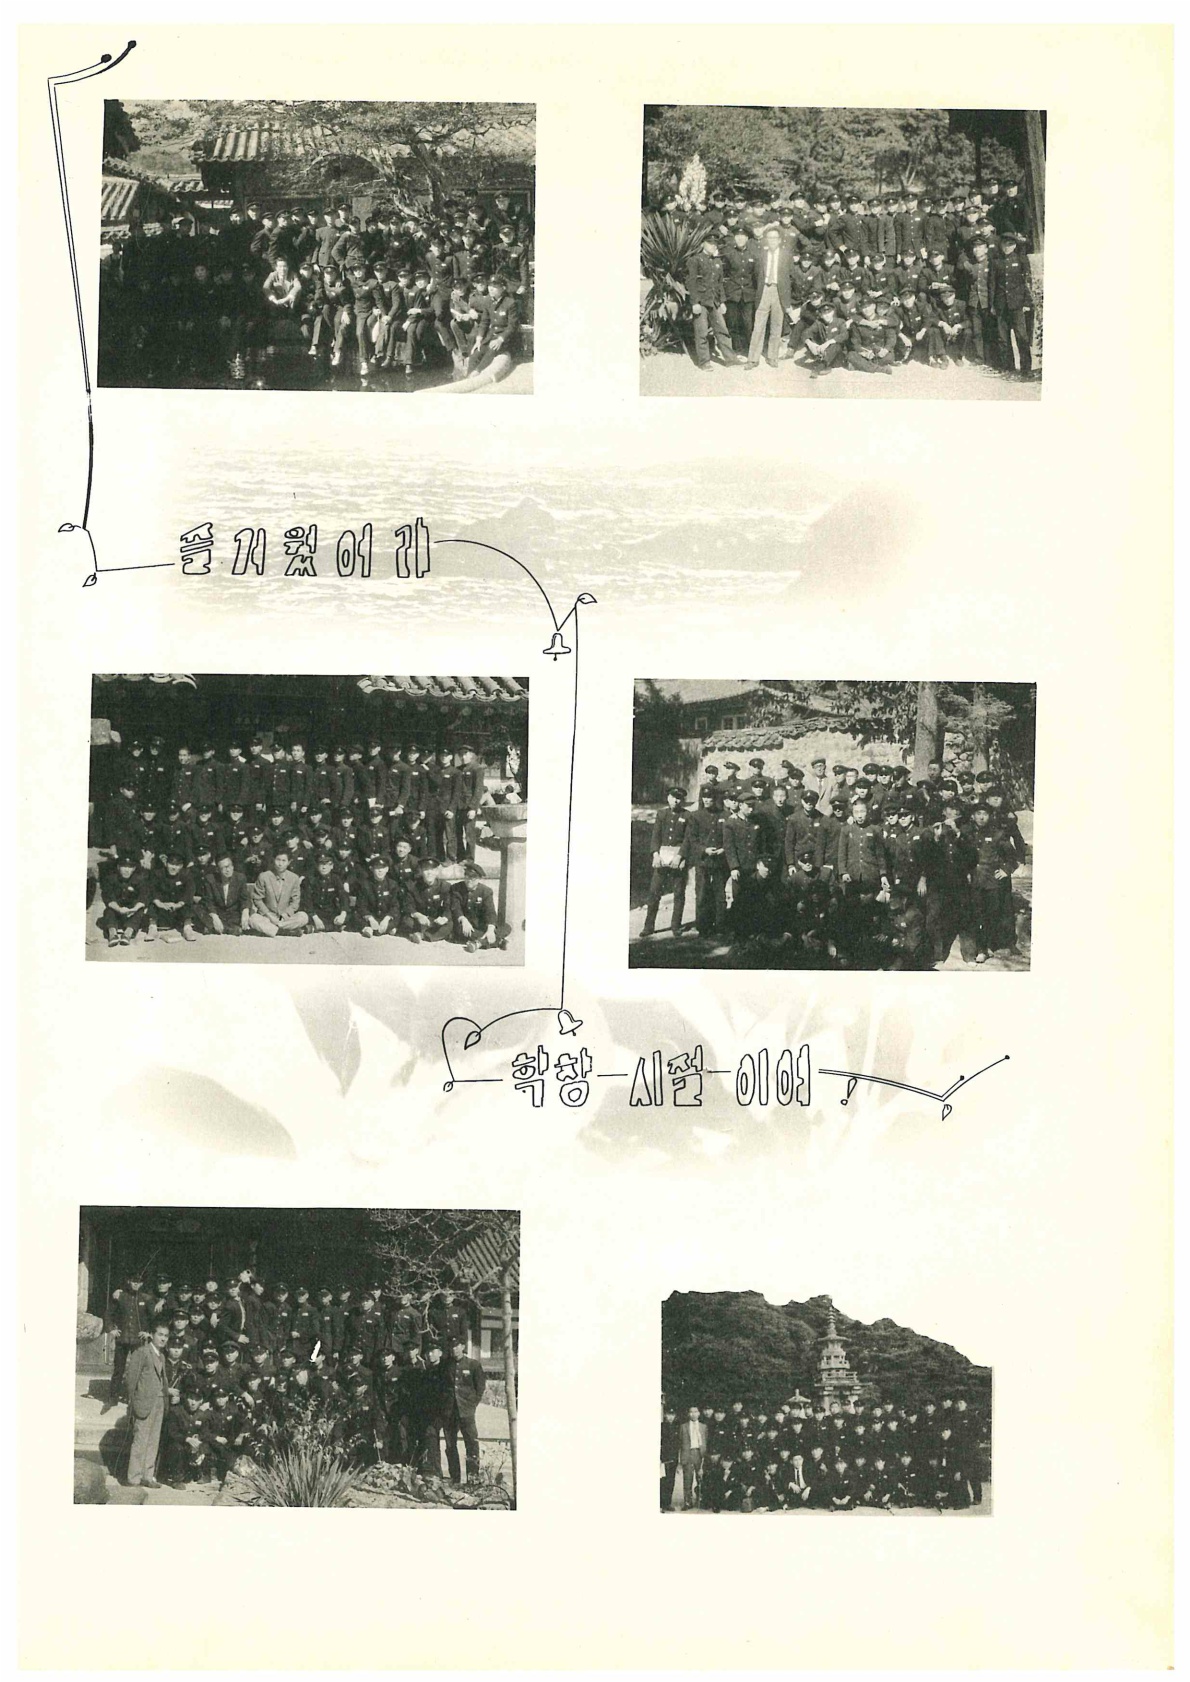 즐거웠어라
학창 시절 이여 !